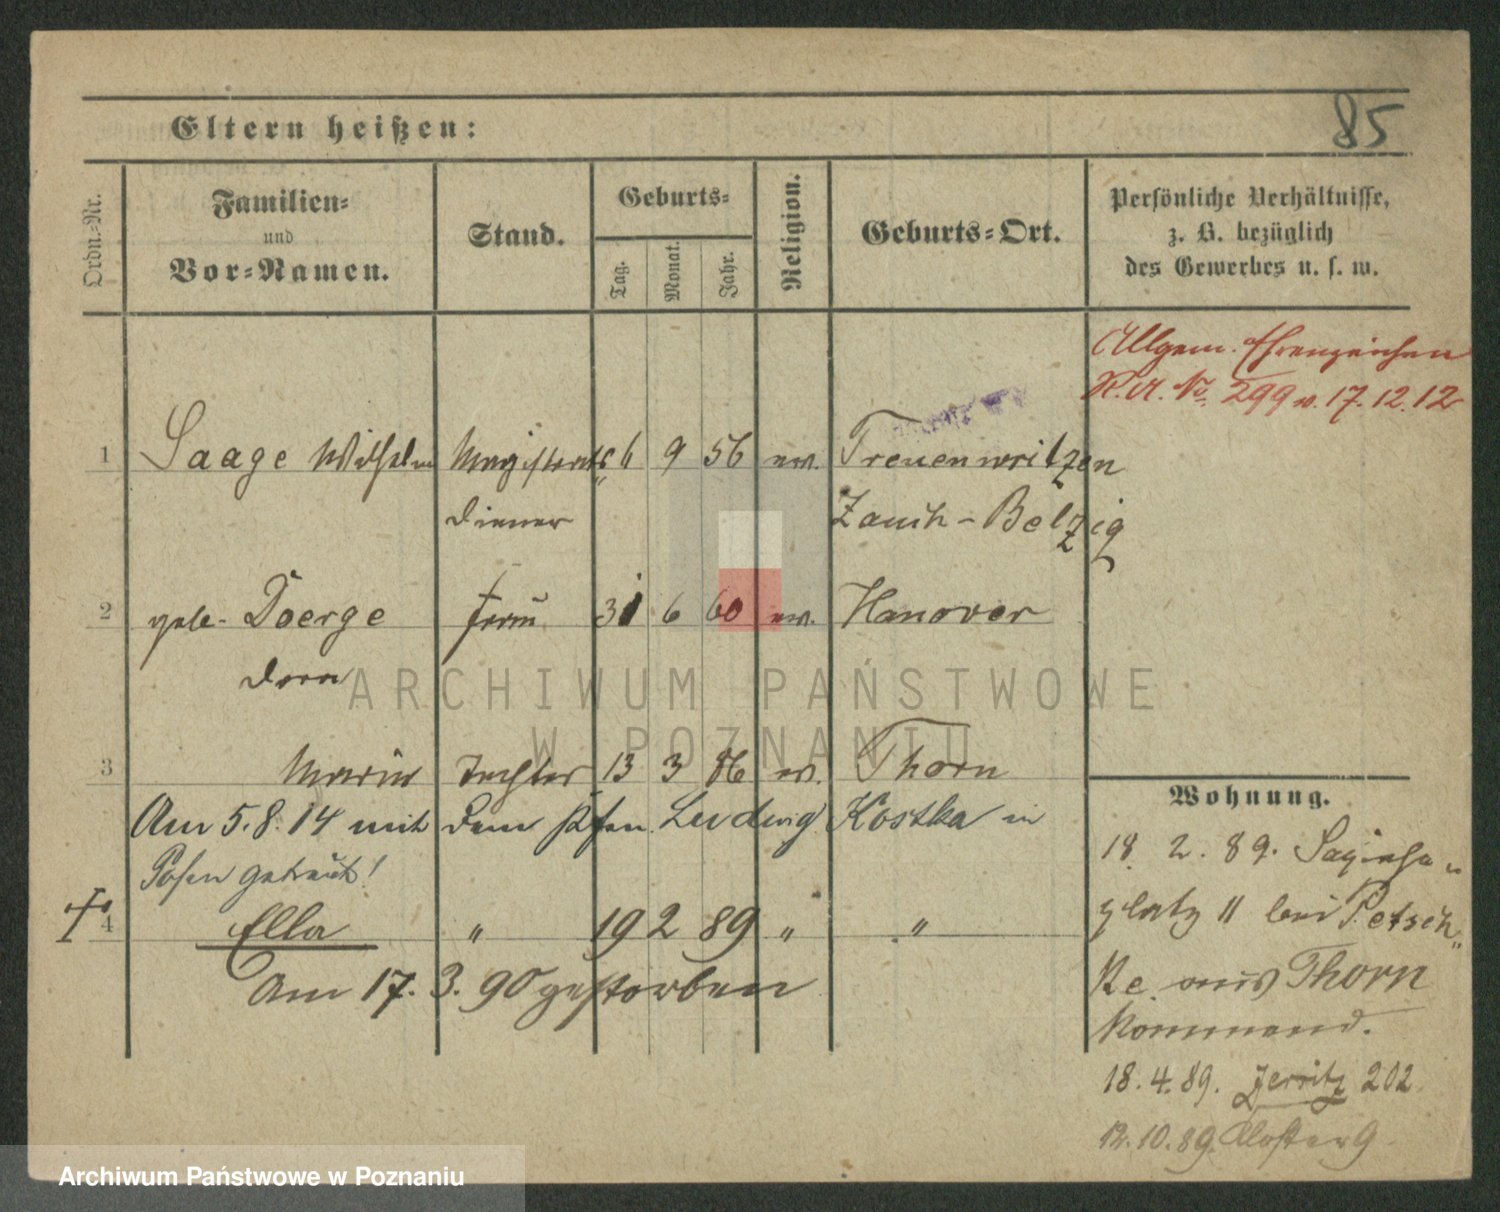 85
Eltern heißen:
Ordn.-Nr.
Familien-
und
Vor-Namen.
Stand.
Geburts-
Tag.
Monat.
Jahr.
Religion.
Geburts-Ort.
Persönliche Verhältnisse,
z. B. bezüglich
des Gewerbes u. s. w.
Allgem. Ehrenzeichen
No. 299 v. 17.12.12
1 Saage Wilhelm Magistrats 6 9 56 ev. Treuenwritzen
diener Zauch-Belzig
2 geb. Doerge Frau 31 6 60 ev. Hanover
Dora
ARCHIWUM PAŃSTWOWE
W POZNANIU
3 Maria Tochter 13 3 86 ev. Thorn
Am 5.8.14 mit dem Ludwig Kostka in
Posen getraut!
4 Ella " 19 2 89 " "
Am 17. 3. 90 gestorben
Wohnung.
18. 2. 89. Sapieha
platz 11 bei Petsch
ke aus Thorn
kommend.
18.4.89. Jersitz 202
12.10.89. Kloster 9
Archiwum Państwowe w Poznaniu